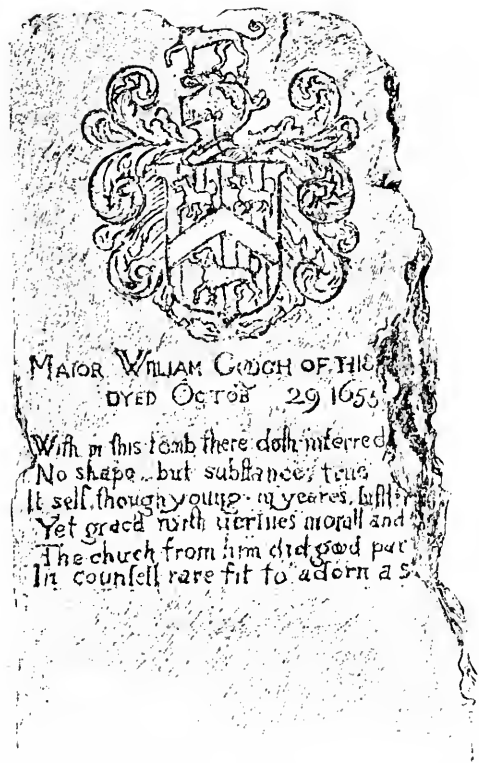 MAIOR WILLIAM GOOCH OF THIS
DYED OCTOB 29 1655
With in this tomb there doth interred
No shape but substance, true
It self, though young in yeares,
Yet gracd with vertues morall and
The church from him did good par
In counsell rare fit to adorn a s